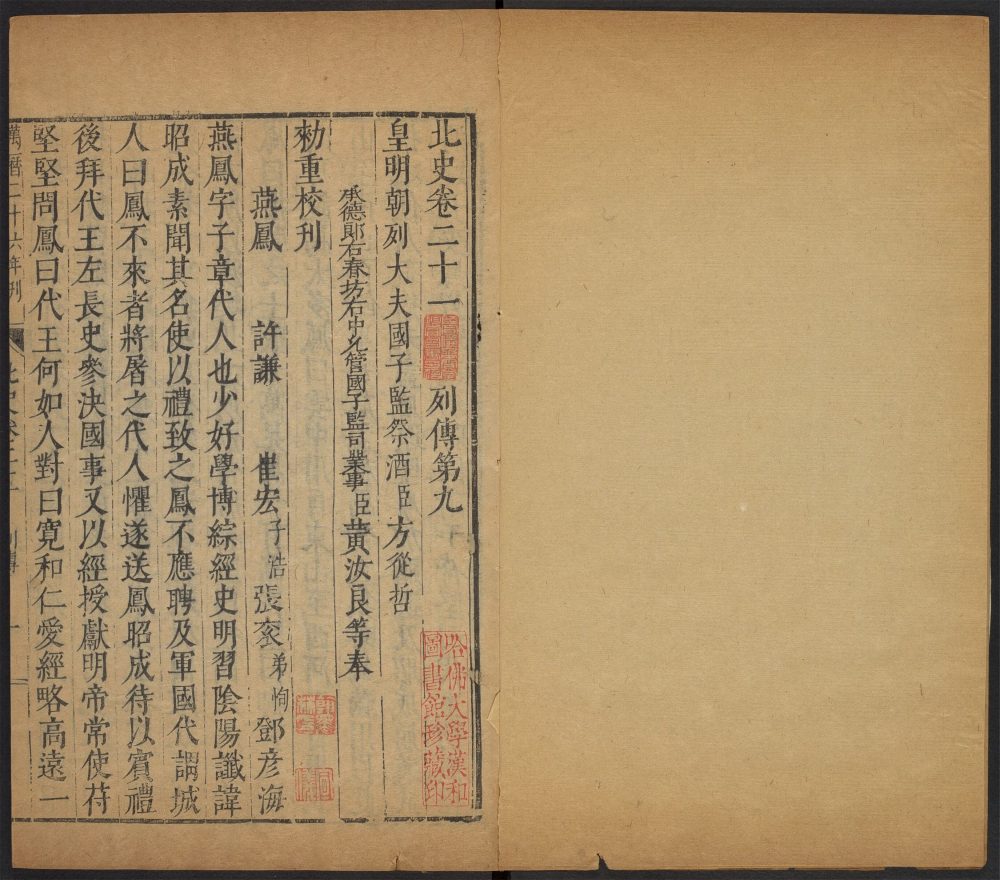 北史卷二十一　列傳第九
皇明朝列大夫國子監祭酒臣方從哲
承德郎右春坊右中允管國子監司業事臣黃汝良等奉
勑重校刊
燕鳳　許謙　崔宏子浩　張袞弟恂　鄧彦海
燕鳳字子章代人也少好學博綜經史明習陰陽讖諱
昭成素聞其名使以禮致之鳳不應聘及軍國代謂城
人曰鳳不來者將屠之代人懼遂送鳳昭成待以賓禮
後拜代王左長史參決國事又以經授獻明帝常使苻
堅堅問鳳曰代王何如人對曰寬和仁愛經略高遠一
萬曆二十六年刊　北史卷二十一　列傳　一
哈佛大學漢和
圖書館珍藏印